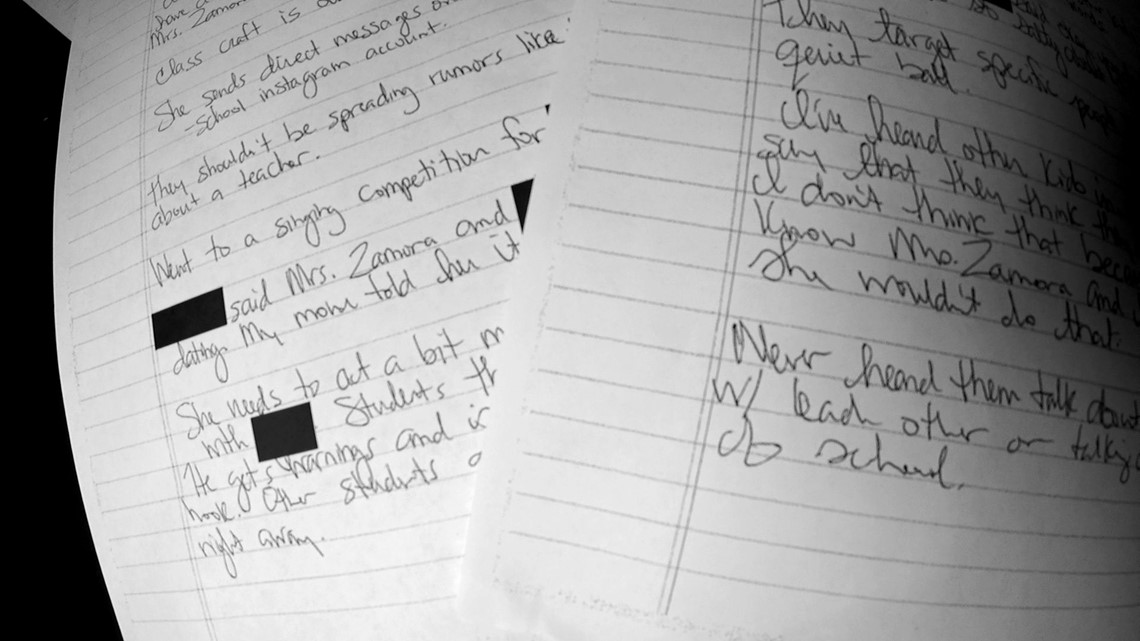 have a
Mrs. Zamora
class craft is
She sends direct messages
-school instagram account.
they shouldn't be spreading rumors like
about a teacher.
Went to a singing competition for
said Mrs. Zamora and
dating. My mom told her it
She needs to act a bit
with Students
He gets warnings and is
hook. Other students
right away.
They target specific
quiet ball.
I've heard other kids
say that they think
I don't think that
Know Ms. Zamora and
She wouldn't do that.
Never heard them talk about
w/ each other or talking
of school.